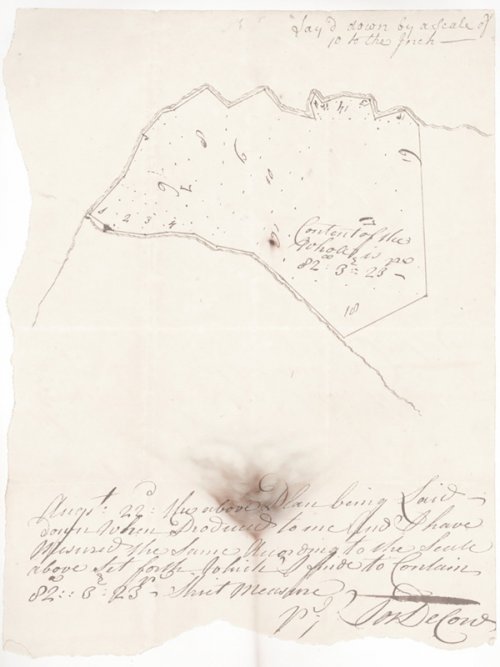 Lay'd down by a scale of
10 to the Inch
14
11
8
9
10
7
6
1 2 3 4
Content of the
Whole is pr
82 : 3 : 23
18
Augst. 22d: The above Plan being Laid
down When Produced to me And I have
Mesured the Same According to the Scale
above Set forth Which I finde to Contain
82 :: 3 : 23 Strict Measure
Pr. DeCow